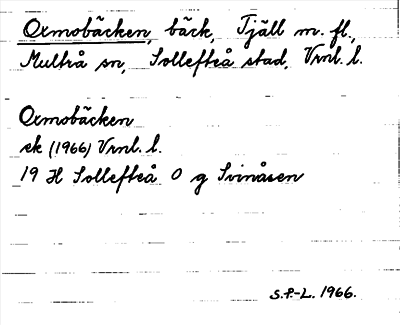 Oxmobäcken, bäck, Tjäll m. fl.,
Multrå sn, Sollefteå stad, Vrnl. l.
Oxmobäcken
ek (1966) Vrnl. l.
19 H Sollefteå O g Svinåsen
S.P.-L. 1966.